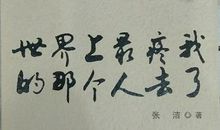 世界上最疼我
的那个人去了
张 洁◎著